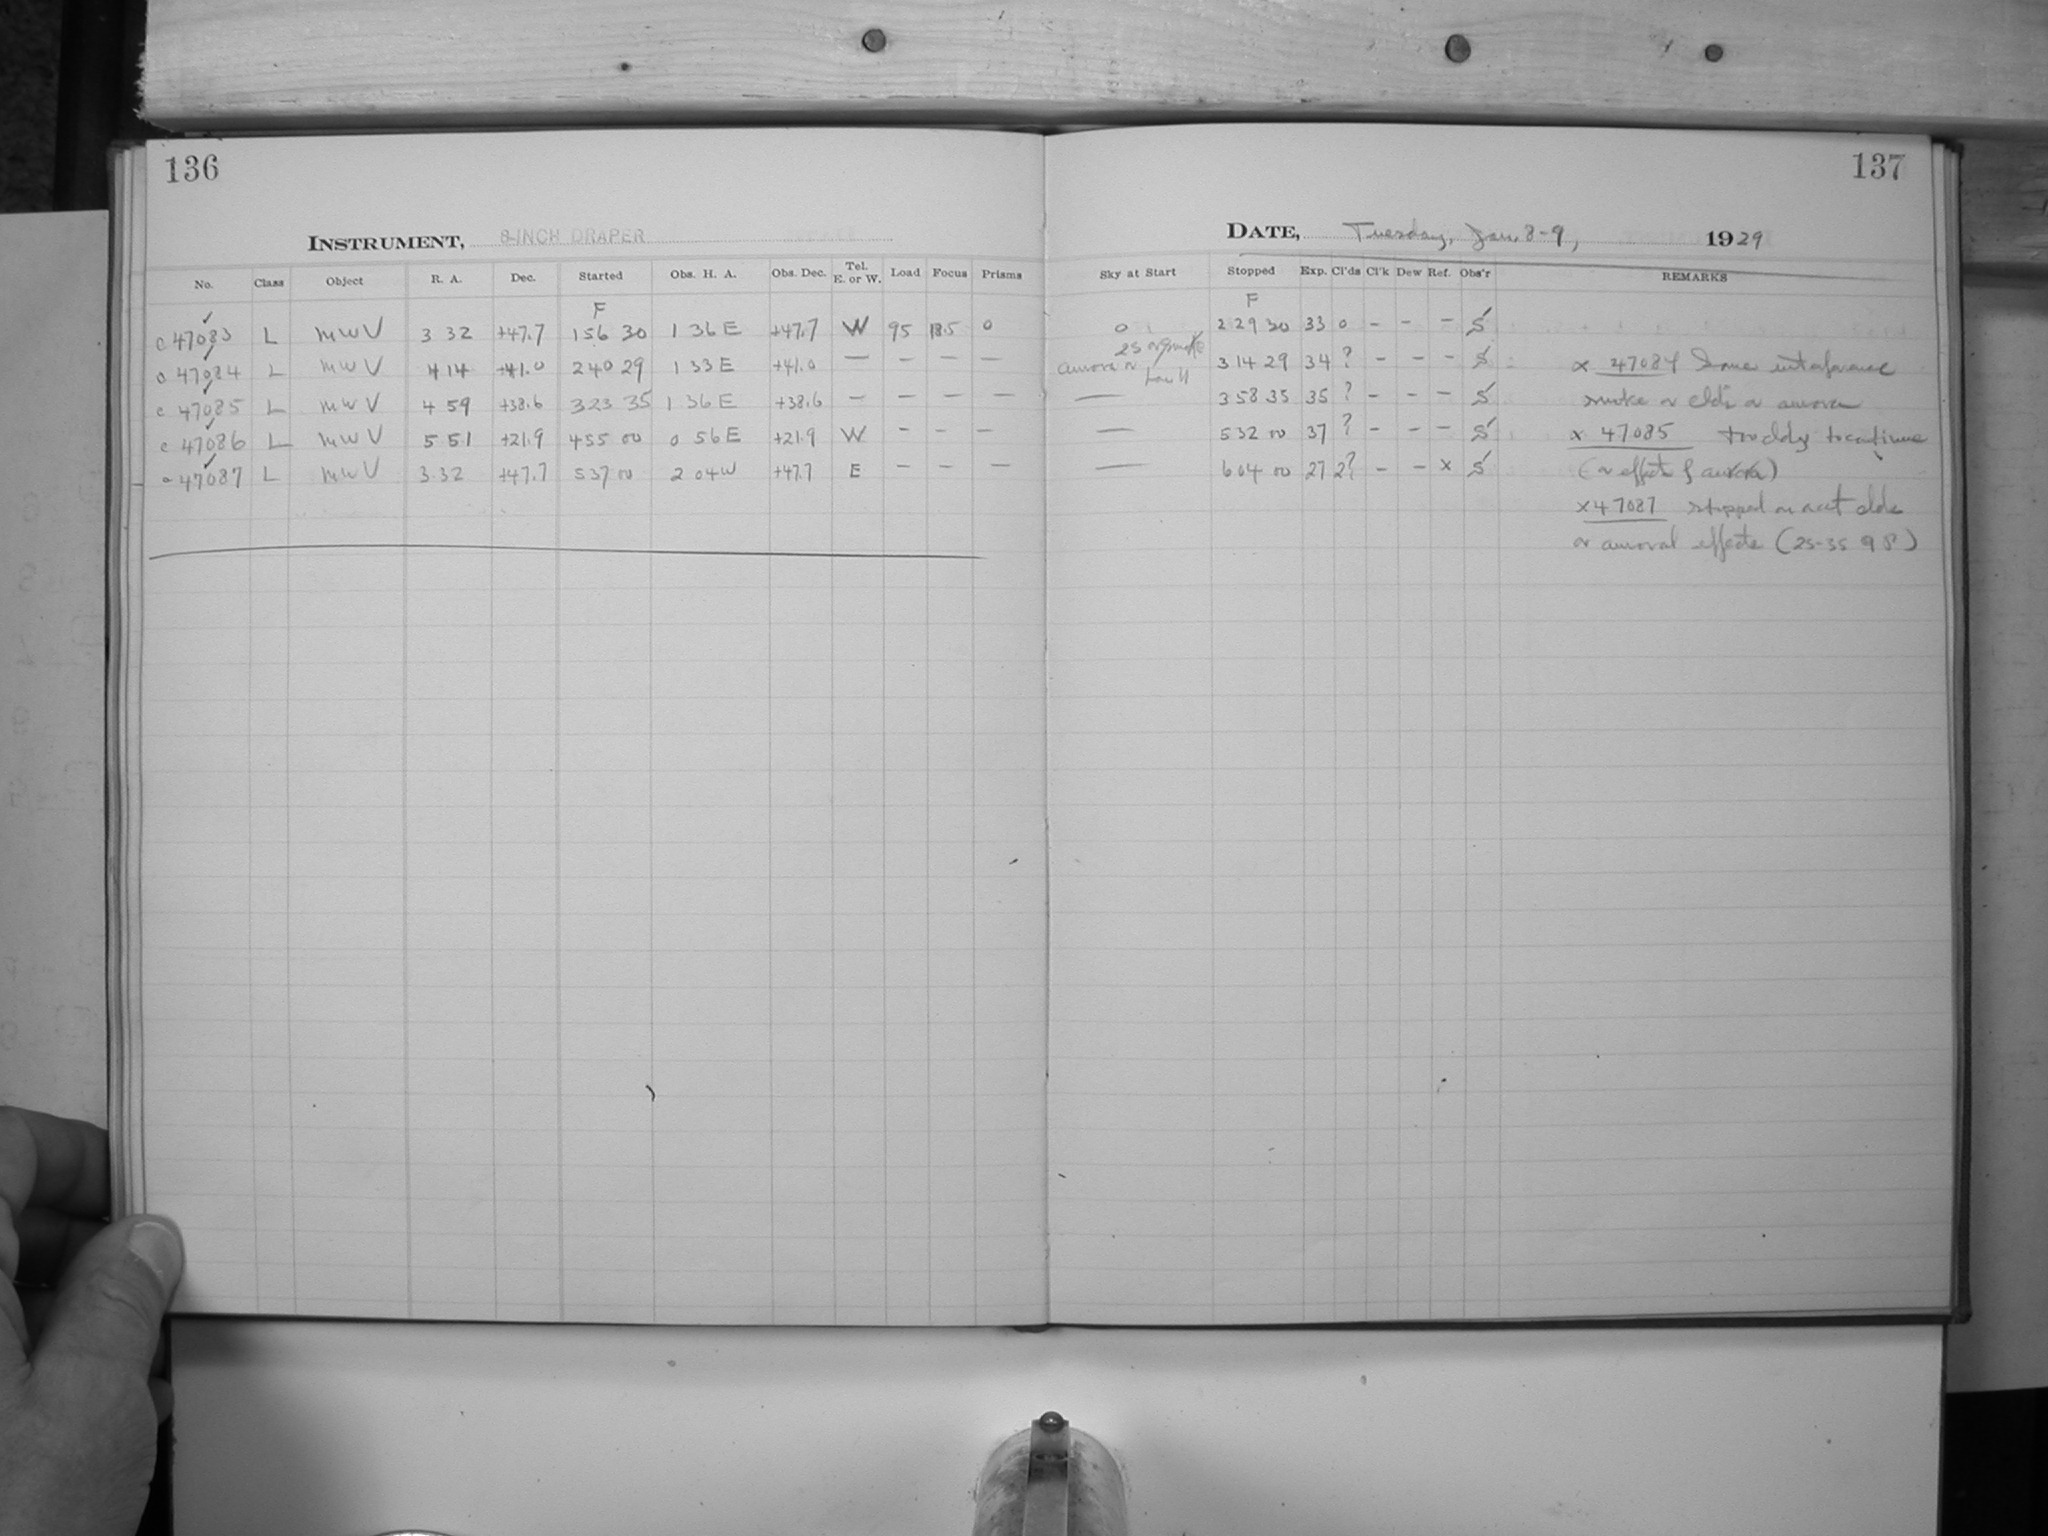 136
INSTRUMENT, 8-INCH DRAPER
No. Class Object R. A. Dec. Started Obs. H. A. Obs. Dec. Tel. E. or W. Load Focus Prisms
F
c 47083 L MWV 3 32 +47.7 1 56 30 1 36 E +47.7 W 95 18.5 0
47084 L MWV 4 14 +41.0 2 40 29 1 33 E +41.0 — — — —
c 47085 L MWV 4 59 +38.6 3 23 35 1 36 E +38.6 — — — —
c 47086 L MWV 5 51 +21.9 4 55 00 0 56 E +21.9 W — — —
47087 L MWV 3 32 +47.7 5 37 00 2 04 W +47.7 E — — —
137
DATE, Tuesday, Jan. 8-9, 1929
Sky at Start Stopped Exp. Cl'ds Cl'k Dew Ref. Obs'r REMARKS
F
0 2 29 30 33 0 – – – S
2S or smoke
aurora or 3 14 29 34 ? – – – S x 47084 Some interference
— 3 58 35 35 ? – – – S smoke or clds or aurora
— 5 32 00 37 ? – – – S x 47085 too cldy to continue
— 6 04 00 27 2? – – x S (or effect of aurora)
x 47087 stopped on acct clds
or auroral effects (2S-3S 9 P)